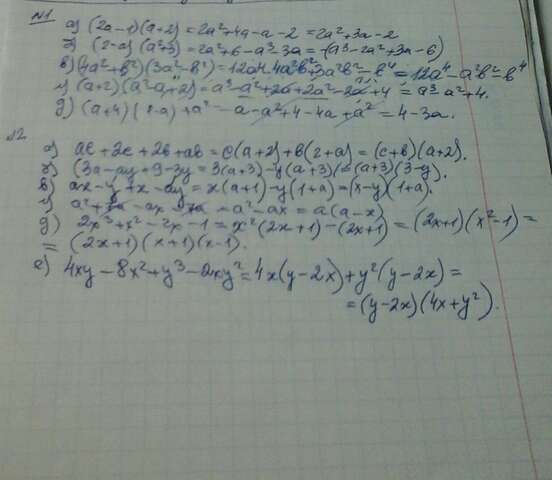 №1
а) (2a-1)(a+2) = 2a²+4a-a-2 = 2a²+3a-2
б) (2-a)(a²+3) = 2a²+6-a³-3a = -(a³-2a²+3a-6)
в) (4a²+b²)(3a²-b²) = 12a⁴-4a²b²+3a²b²-b⁴ = 12a⁴-a²b²-b⁴
г) (a+2)(a²-a+2) = a³-a²+2a+2a²-2a+4 = a³+a²+4.
д) (a+4)(1-a)+a² = a-a²+4-4a+a² = 4-3a.
№2
а) ac+2c+2b+ab = c(a+2)+b(2+a) = (c+b)(a+2).
б) (3a-ay+9-3y = 3(a+3)-y(a+3) = (a+3)(3-y).
в) ax-y+x-ay = x(a+1)-y(1+a) = (x-y)(1+a).
= a²-ax = a(a-x)
д) 2x³+x²-2x-1 = x²(2x+1)-(2x+1) = (2x+1)(x²-1) =
= (2x+1)(x+1)(x-1).
е) 4xy-8x²+y³-2xy² = 4x(y-2x)+y²(y-2x) =
= (y-2x)(4x+y²).